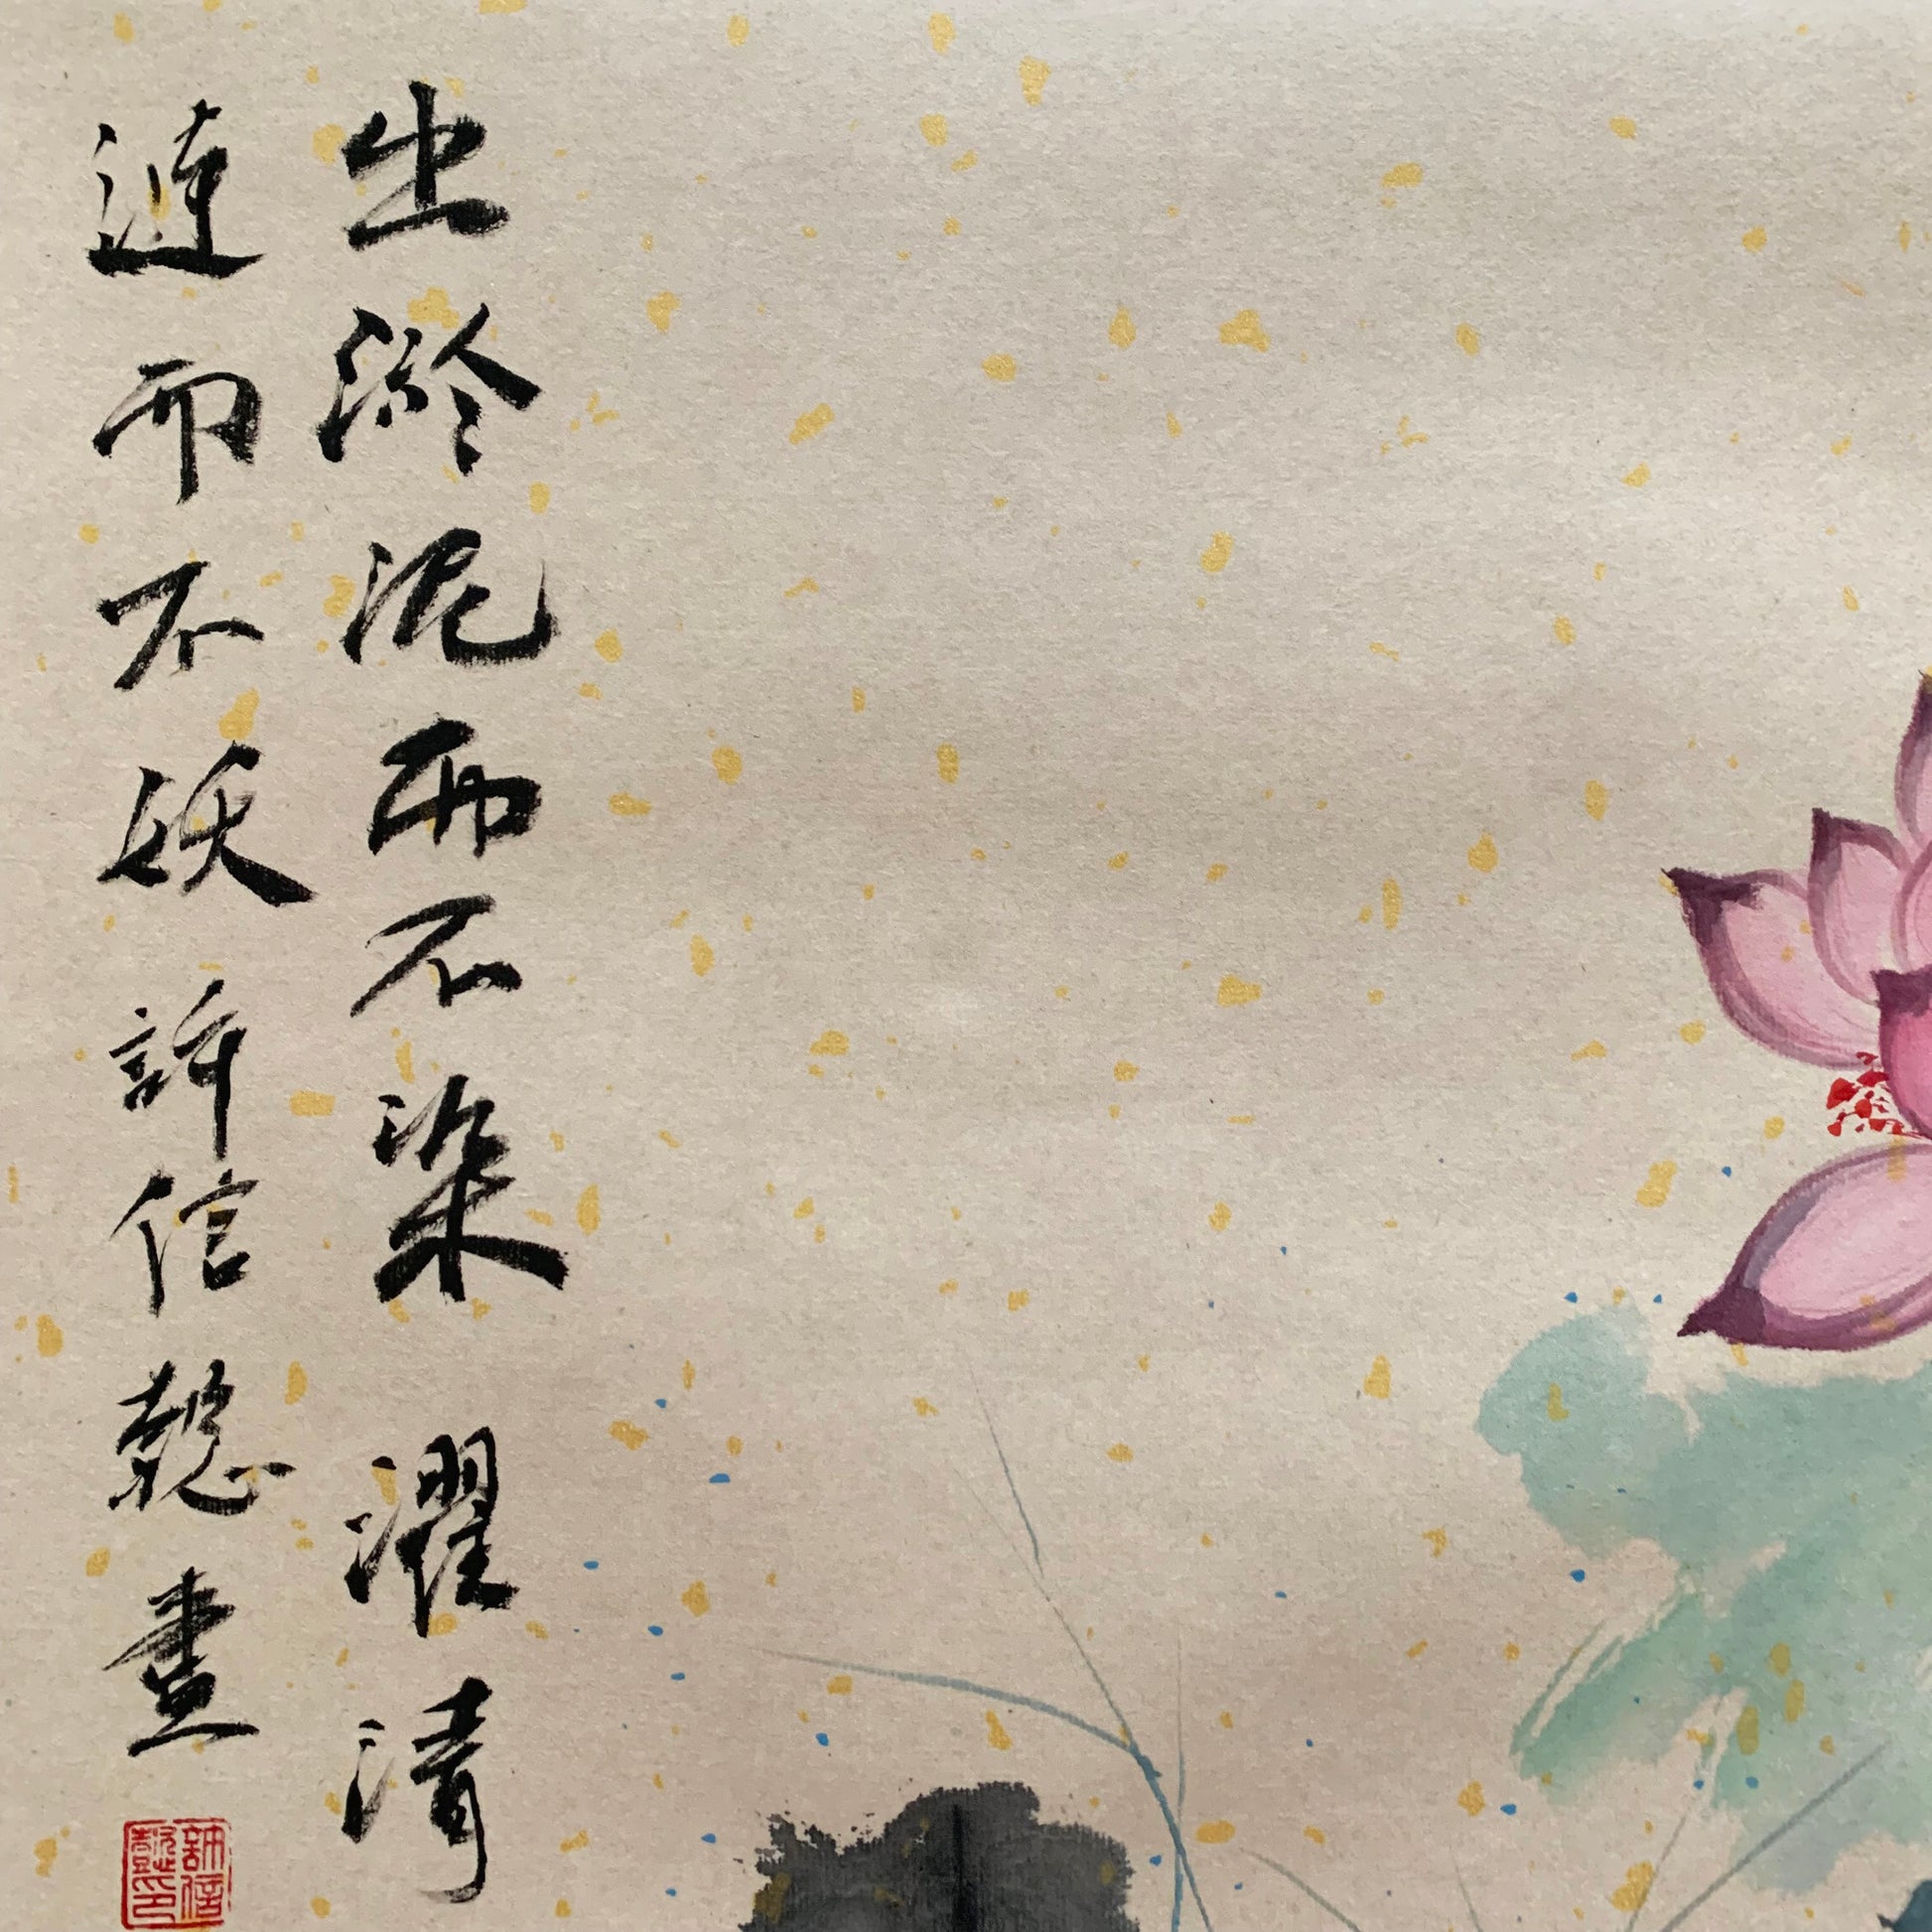 出淤泥而不染濯清
漣而不妖許信懿畫
許信
懿印